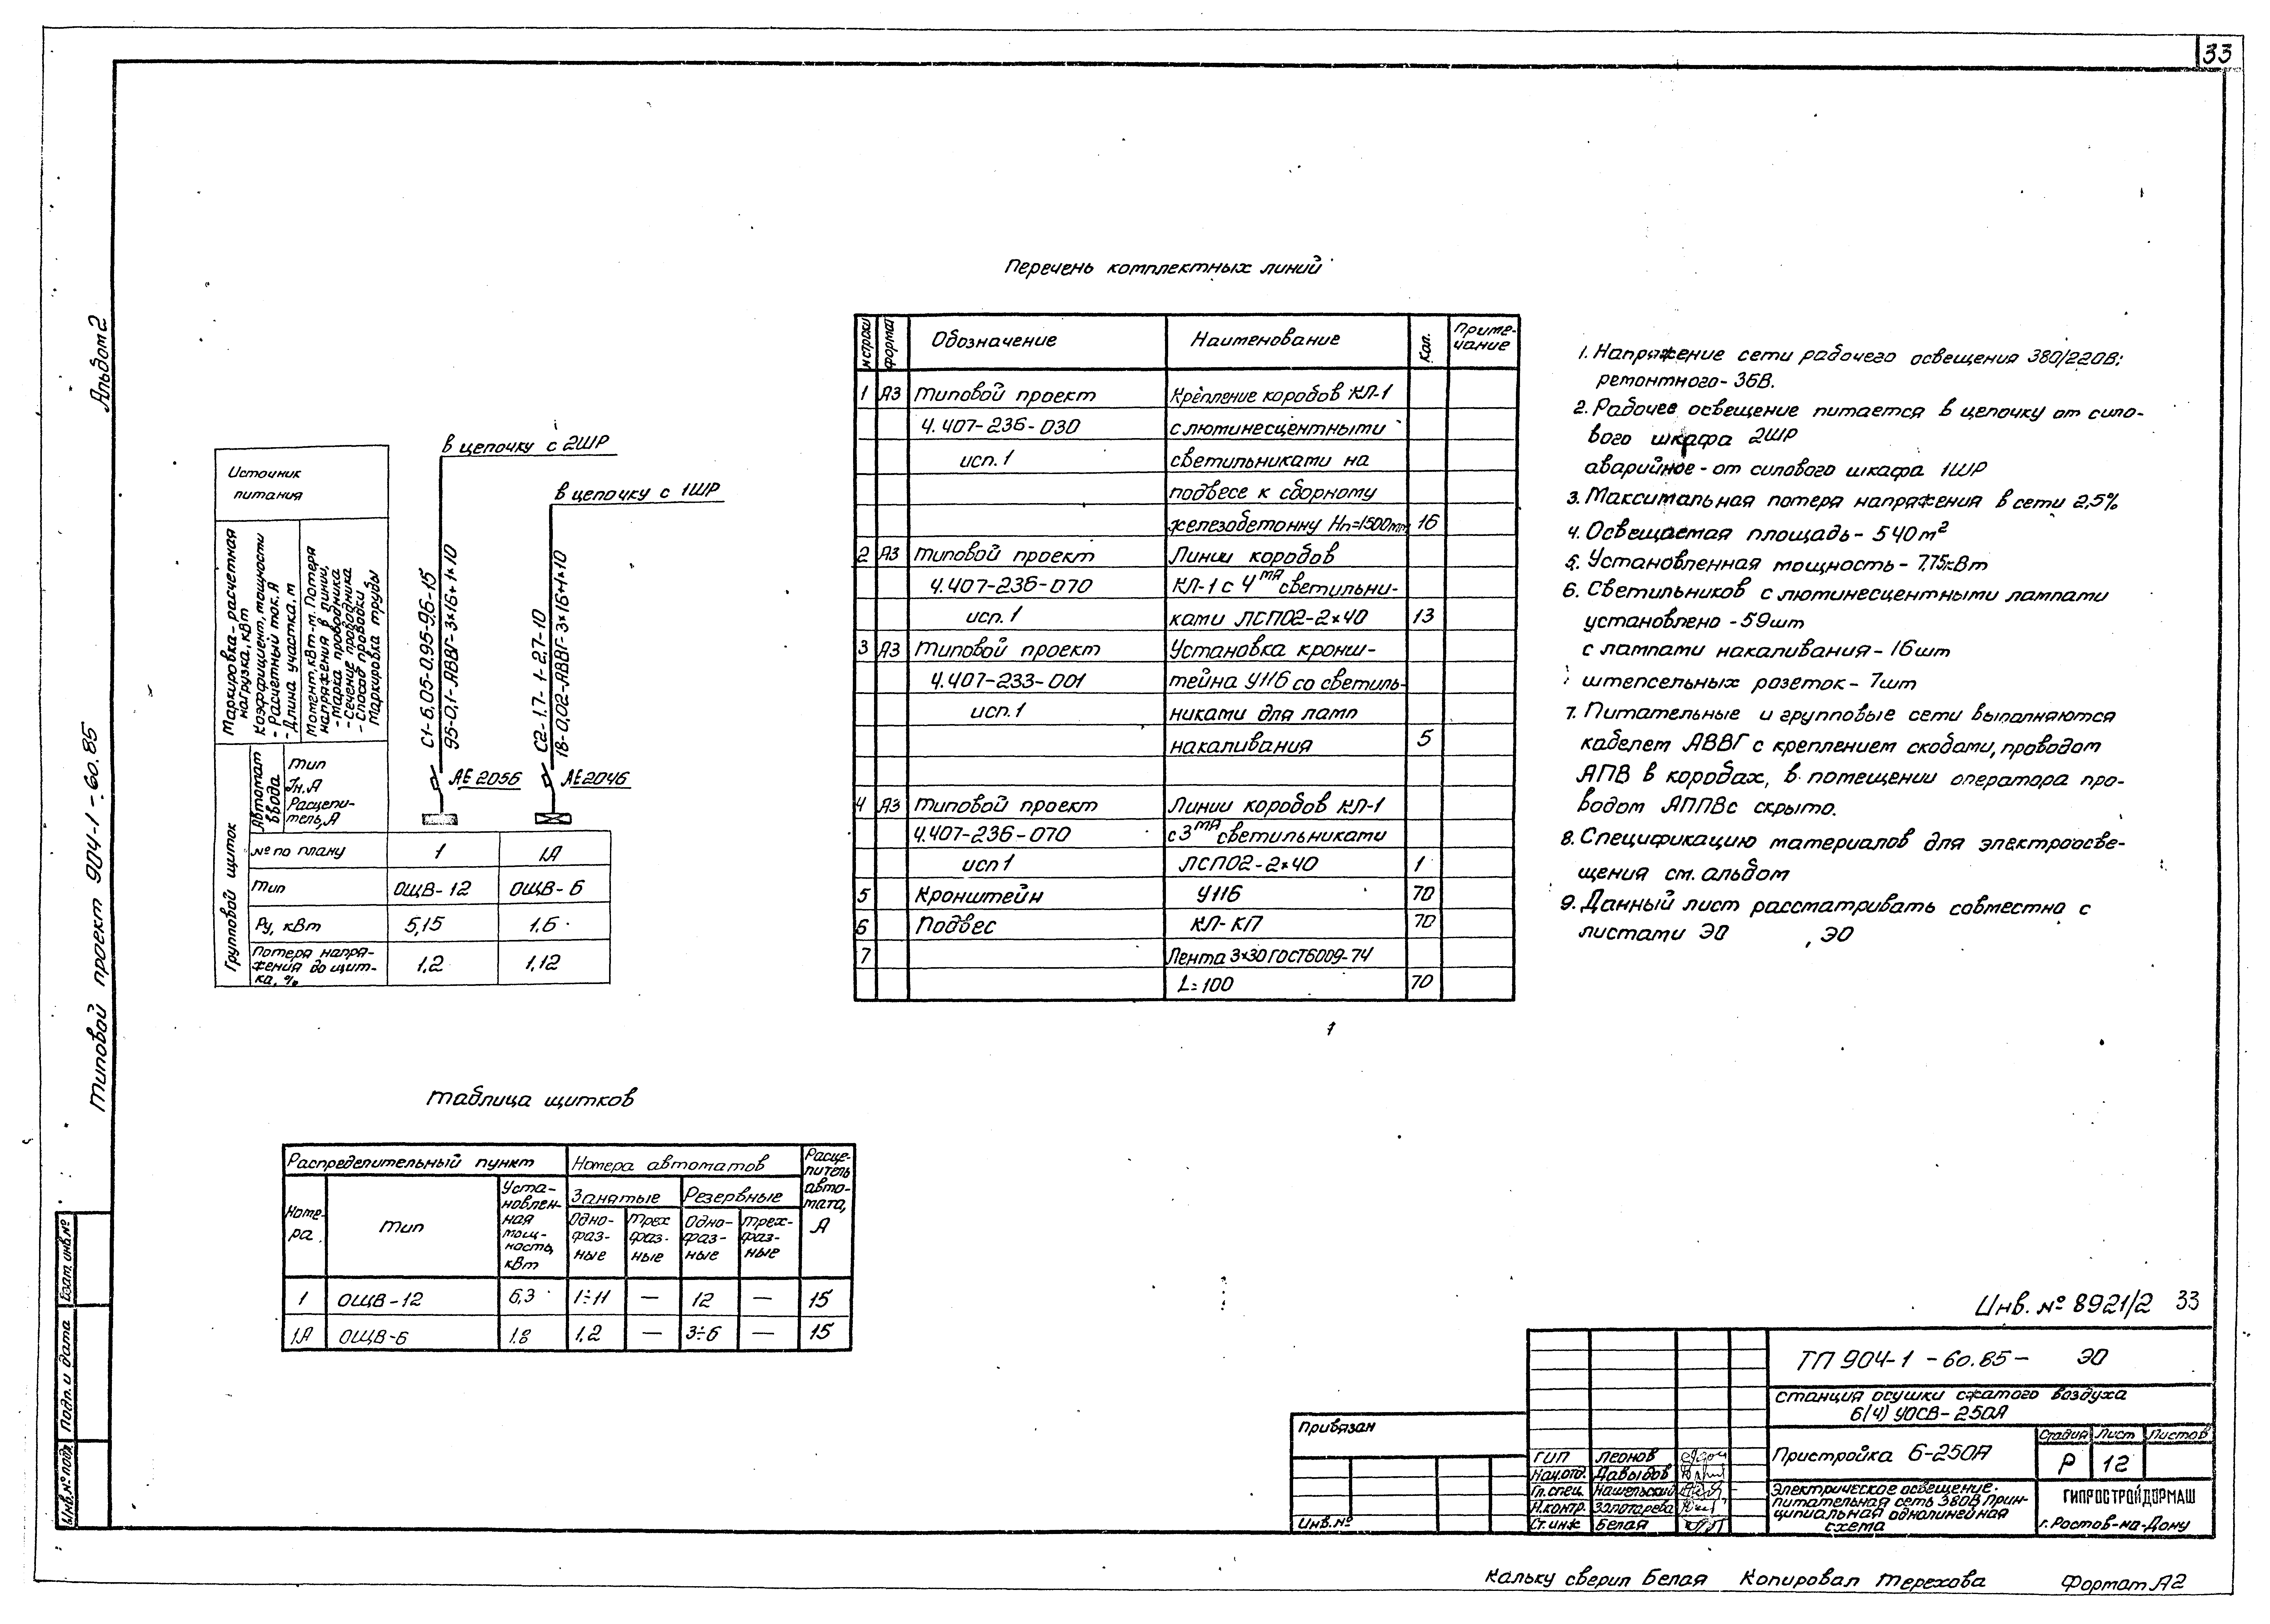 33
Альбом 2
Типовой проект 904-1-60.85
в цепочку с 2ШР
в цепочку с 1ШР
Источник
питания
Маркировка-расчетная
нагрузка, кВт
Коэффициент мощности
- Расчетный ток, А
- Длина участка, м
Момент, кВт-м. Потеря
напряжения в линии,
- Марка проводника
- Сечение проводника
- Способ проводки
Маркировка трубы
С1-6,05-0,95-9,6-15
95-0,1-АВВГ-3×16+1×10
С2-1,7-1-2,7-10
18-0,02-АВВГ-3×16+1×10
Групповой щиток
Автомат
ввода
Тип
Iн, А
Расцепи-
тель, А
АЕ2056
АЕ2046
№ по плану 1 1А
Тип ОЩВ-12 ОЩВ-6
Ру, кВт 5,15 1,6
Потеря напря-
жения до щит-
ка, %
1,2 1,12
Перечень комплектных линий
№ строки формат Обозначение Наименование Кол. Приме-
чание
1 А3 Типовой проект Крепление коробов КЛ-1
4.407-236-030 с люминесцентными
исп.1 светильниками на
подвесе к сборному
железобетонну Нп=1500мм 16
2 А3 Типовой проект Линии коробов
4.407-236-070 КЛ-1 с 4мя светильни-
исп.1 ками ЛСП02-2×40 13
3 А3 Типовой проект Установка кронш-
4.407-233-001 тейна У116 со светиль-
исп.1 никами для ламп
накаливания 5
4 А3 Типовой проект Линии коробов КЛ-1
4.407-236-070 с 3мя светильниками
исп 1 ЛСП02-2×40 1
5 Кронштейн У116 70
6 Подвес КЛ-КП 70
7 Лента 3×30 ГОСТ6009-74
L=100 70
1. Напряжение сети рабочего освещения 380/220В;
ремонтного-36В.
2. Рабочее освещение питается в цепочку от сило-
вого шкафа 2ШР
аварийное-от силового шкафа 1ШР
3. Максимальная потеря напряжения в сети 2,5%
4. Освещаемая площадь-540м²
5. Установленная мощность-7,75кВт
6. Светильников с люминесцентными лампами
установлено-59шт
с лампами накаливания-16шт
штепсельных розеток-7шт
7. Питательные и групповые сети выполняются
кабелем АВВГ с креплением скобами, проводом
АПВ в коробах, в помещении оператора про-
водом АППВс скрыто.
8. Спецификацию материалов для электроосве-
щения см. альбом
9. Данный лист рассматривать совместно с
листами ЭО , ЭО
Таблица щитков
Распределительный пункт Номера автоматов Расце-
питель
авто-
мата,
А
Номе-
ра
Тип
Уста-
новлен-
ная
мощ-
ность,
кВт
Занятые Резервные
Одно-
фаз-
ные
Трех
фаз-
ные
Одно-
фаз-
ные
Трех-
фаз-
ные
1 ОЩВ-12 6,3 1÷11 — 12 — 15
1А ОЩВ-6 1.8 1,2 — 3÷6 — 15
Инв. № 8921/2 33
ТП 904-1-60.85- ЭО
Станция осушки сжатого воздуха
6(4) УОСВ-250А
Пристройка 6-250А
Стадия Лист Листов
Р 12
Электрическое освещение.
питательная сеть 380В Прин-
ципиальная однолинейная
схема
ГИПРОСТРОЙДОРМАШ
г. Ростов-на-Дону
Привязан
Инв. №
ГИП Леонов
Нач.отд. Давыдов
Гл.спец. Нашельский
Н.контр. Золотарева
Ст.инж Белая
Взам. инв.№
Подп. и дата
Инв.№ подл.
Кальку сверил Белая Копировал Терехова Формат А2